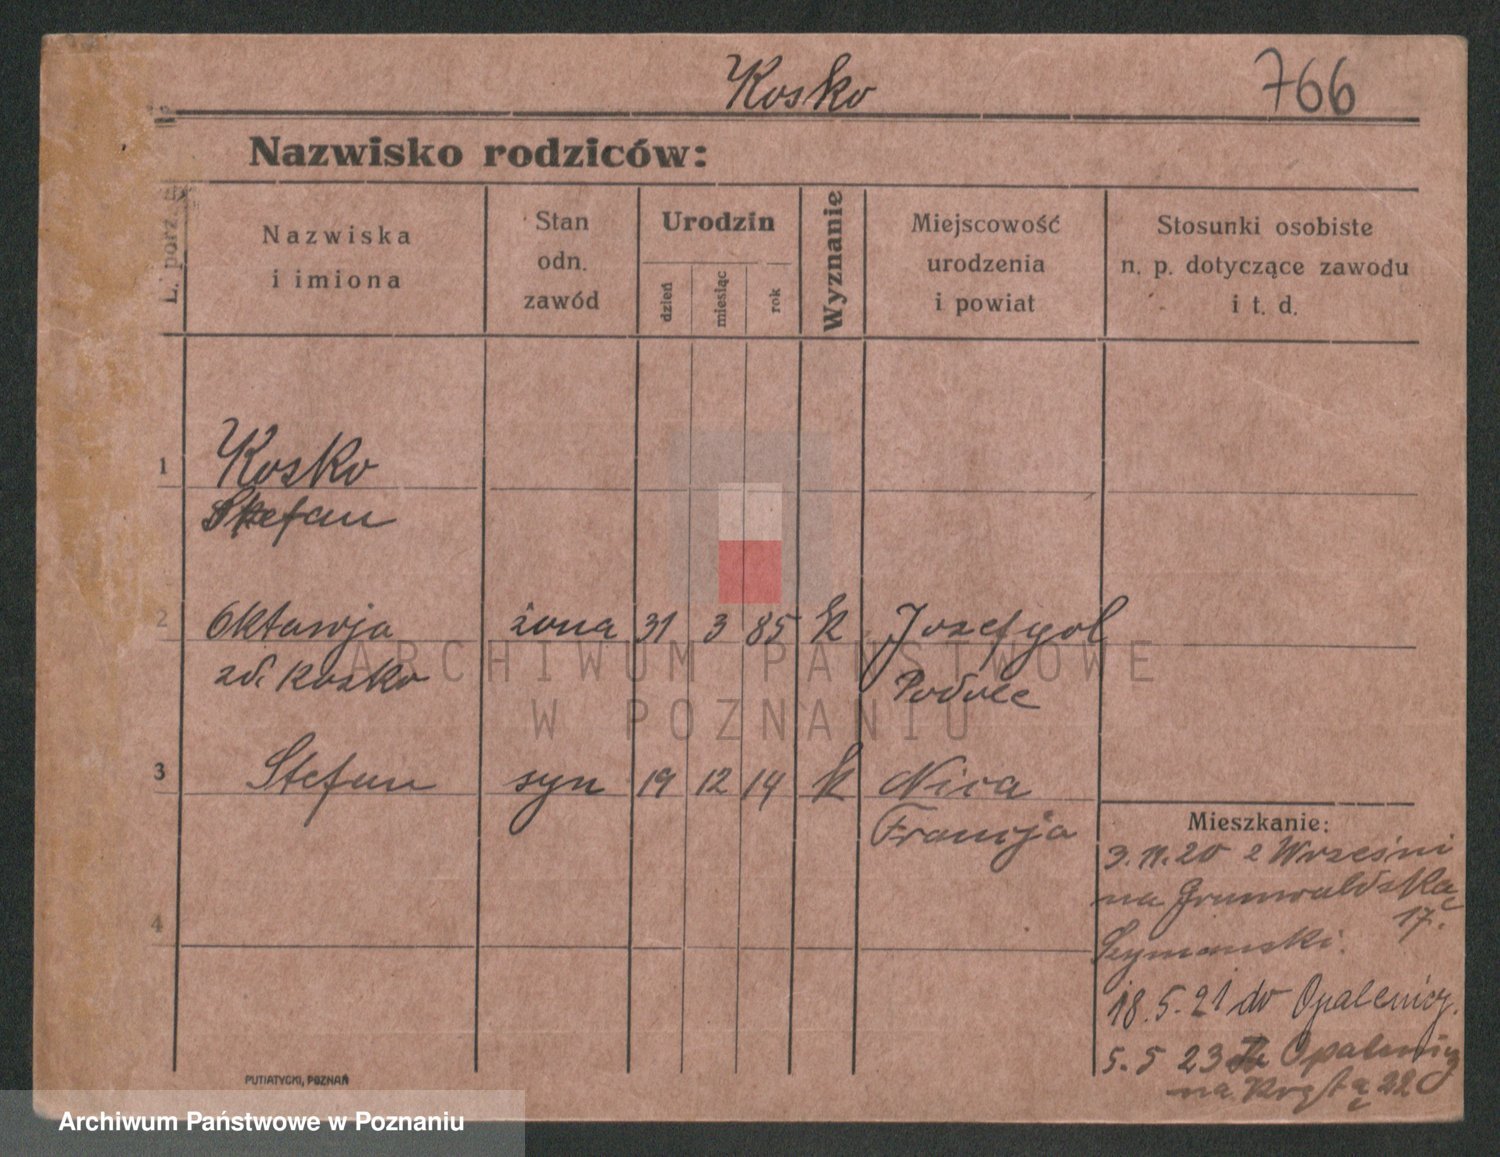 Kosko 766
Nazwisko rodziców:
L. porz.
Nazwiska
i imiona
Stan
odn.
zawód
Urodzin
dzień
miesiąc
rok
Wyznanie
Miejscowość
urodzenia
i powiat
Stosunki osobiste
n. p. dotyczące zawodu
i t. d.
1 Kosko
Stefan
2 Oktawja żona 31 3 85 k Jozefgol
zd. Kosko Podole
3 Stefan syn 19 12 14 k Nica
Francja
4
Mieszkanie:
3.11.20 z Wrześni
na Grunwaldzka
17.
Szymanski.
18.5.21 do Opalenicy.
5.5 23 Opalenicy
na Krętą 22
PUTIATYCKI, POZNAŃ
ARCHIWUM PAŃSTWOWE
W POZNANIU
Archiwum Państwowe w Poznaniu